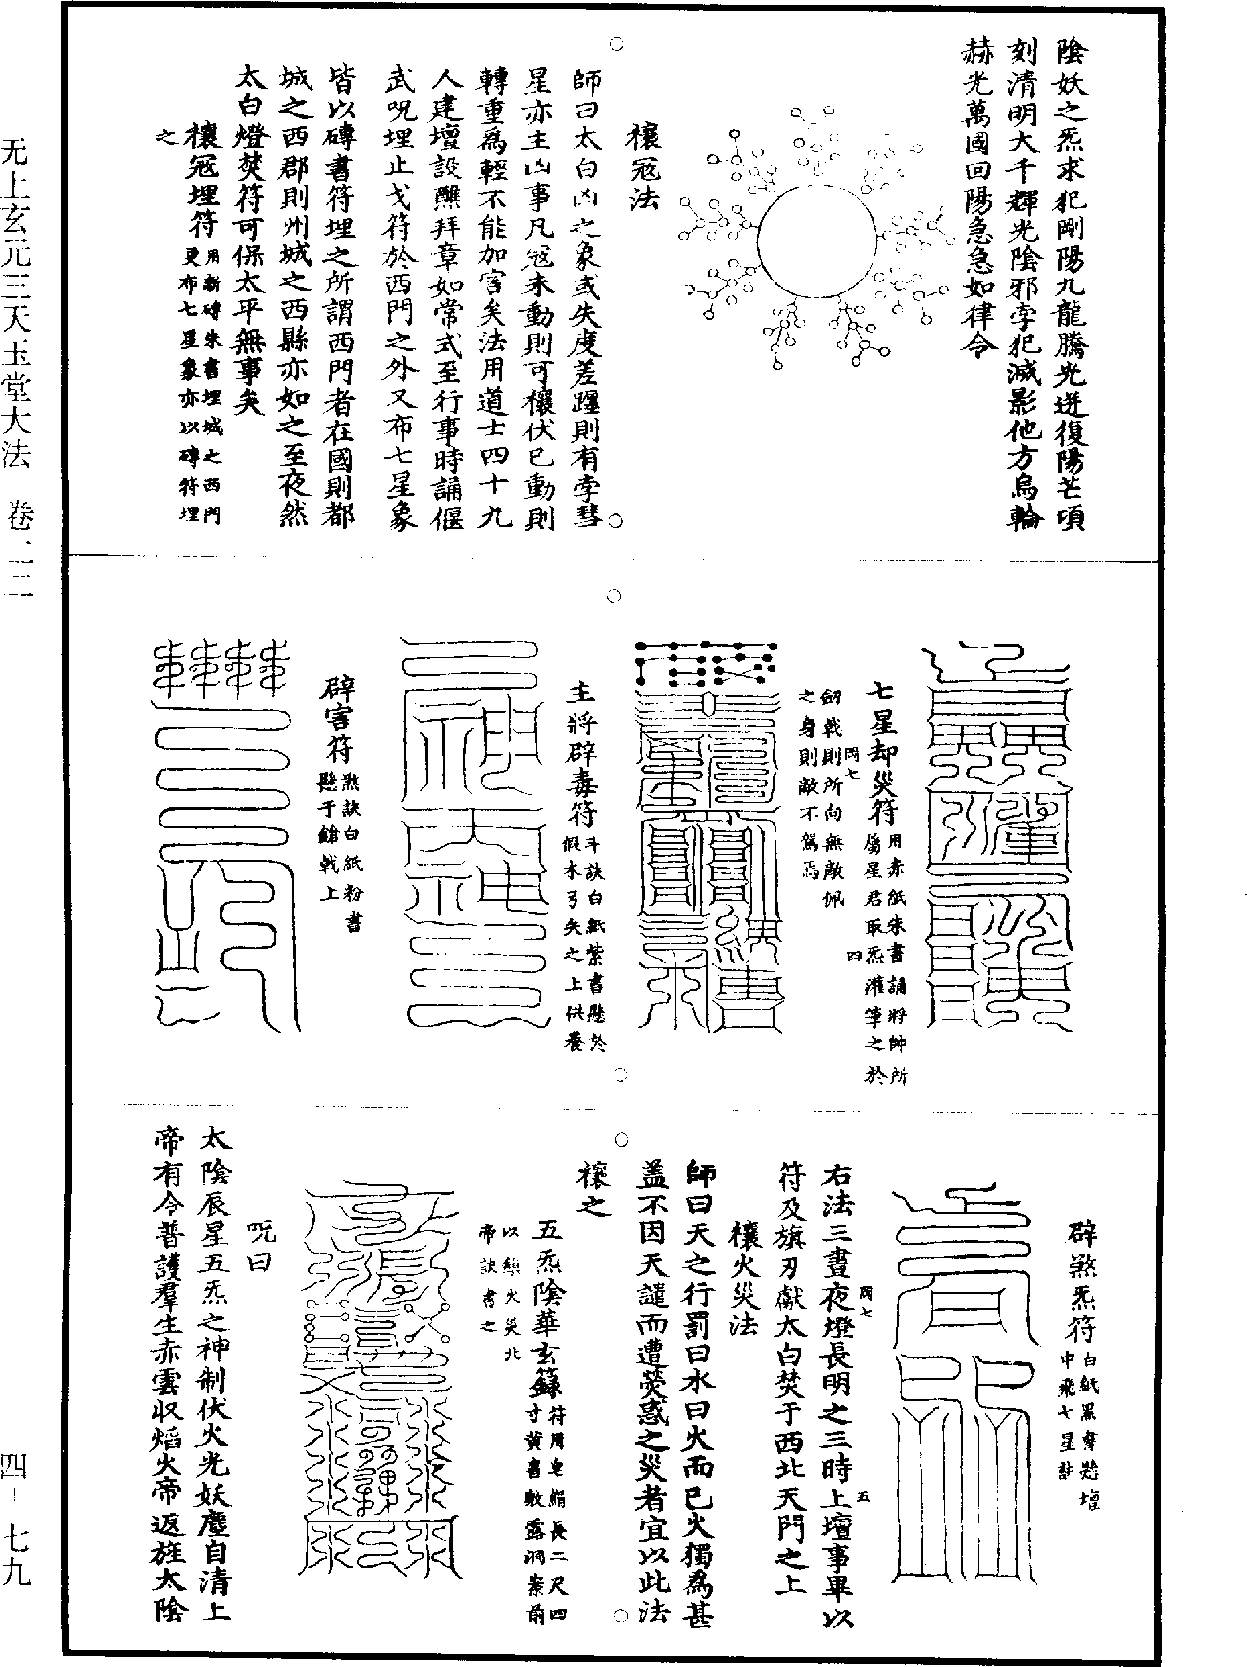 陰妖之炁求犯剛陽九龍騰光迸復陽芒頃
刻清明大千輝光陰邪孛犯滅影他方烏輪
赫光萬國回陽急急如律令
禳寇法
師曰太白凶之象或失度差躔則有孛彗
星亦主凶事凡寇未動則可禳伏已動則
轉重為輕不能加害矣法用道士四十九
人建壇設醮拜章如常式至行事時誦偃
武呪埋止戈符於西門之外又布七星象
皆以磚書符埋之所謂西門者在國則都
城之西郡則州城之西縣亦如之至夜然
太白燈焚符可保太平無事矣
禳寇埋符
用新磚朱書埋城之西門
更布七星象亦以磚符埋
之
七星却災符
用赤紙朱書誦將帥所
屬星君取炁灌筆之於
劒戟則所向無敵佩
之身則敵不駕焉
四
主將辟毒符
斗訣白紙紫書懸於
假木弓矢之上供養
辟害符
煞訣白紙粉書
懸于鎗戟上
辟煞炁符
白紙黑書懸壇
中飛七星訣
右法三晝夜燈長明之三時上壇事畢以
符及旗刃獻太白焚于西北天門之上
五
禳火災法
師曰天之行罰曰水曰火而已火獨為甚
蓋不因天譴而遭熒惑之災者宜以此法
禳之
五炁陰華玄籙
符用皂絹長二尺四
寸黃書敷露洞案前
以鎮火災北
帝訣書之
呪曰
太陰辰星五炁之神制伏火光妖塵自清上
帝有令普護羣生赤雲收焰火帝返旌太陰
无上玄元三天玉堂大法 卷二二
四-七九